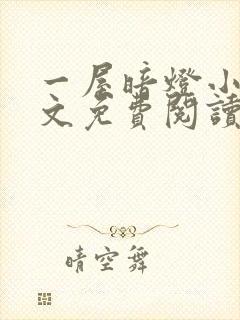 一屋暗燈小
文免費閱讀
晴空舞